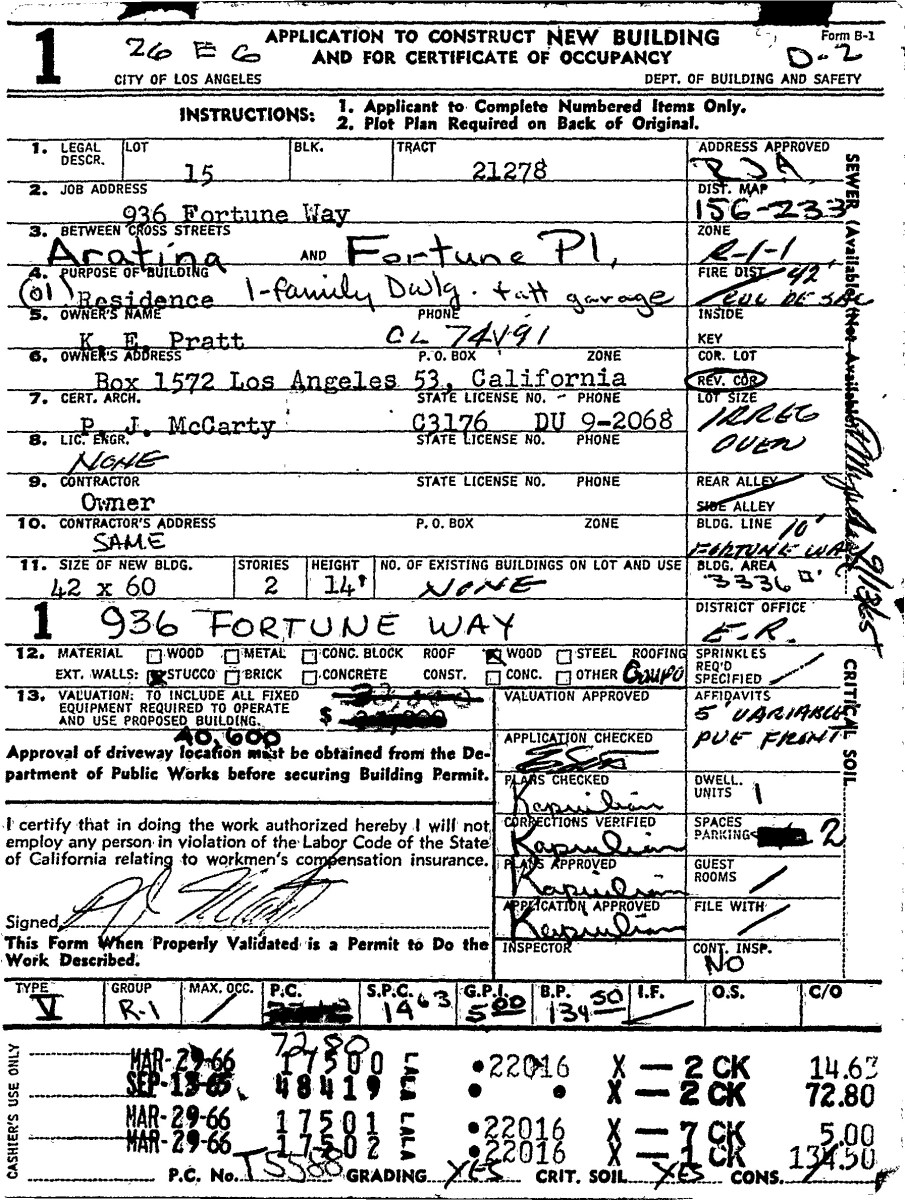 1 26 E 6 APPLICATION TO CONSTRUCT NEW BUILDING Form B-1
AND FOR CERTIFICATE OF OCCUPANCY D-2
CITY OF LOS ANGELES DEPT. OF BUILDING AND SAFETY
INSTRUCTIONS: 1. Applicant to Complete Numbered Items Only.
2. Plot Plan Required on Back of Original.
1. LEGAL DESCR. LOT BLK. TRACT ADDRESS APPROVED
15 21278 RJA
2. JOB ADDRESS DIST. MAP
936 Fortune Way 156-233
3. BETWEEN CROSS STREETS ZONE
Aratina AND Fortune Pl, R-1-1
4. PURPOSE OF BUILDING FIRE DIST. 42'
(01) Residence 1-family Dwlg. + att garage CUL DE SAC
5. OWNER'S NAME PHONE INSIDE
K. E. Pratt CL 74191 KEY
6. OWNER'S ADDRESS P. O. BOX ZONE COR. LOT
Box 1572 Los Angeles 53, California REV. COR
7. CERT. ARCH. STATE LICENSE NO. PHONE LOT SIZE
P. J. McCarty C3176 DU 9-2068 IRREG
8. LIC. ENGR. STATE LICENSE NO. PHONE OVEN
NONE
9. CONTRACTOR STATE LICENSE NO. PHONE REAR ALLEY
Owner SIDE ALLEY
10. CONTRACTOR'S ADDRESS P. O. BOX ZONE BLDG. LINE 10'
SAME FORTUNE WAY
11. SIZE OF NEW BLDG. STORIES HEIGHT NO. OF EXISTING BUILDINGS ON LOT AND USE BLDG. AREA
42 x 60 2 14' NONE 3336
1 936 FORTUNE WAY DISTRICT OFFICE
E.R.
12. MATERIAL WOOD METAL CONC. BLOCK ROOF WOOD STEEL ROOFING SPRINKLERS
EXT. WALLS: STUCCO BRICK CONCRETE CONST. CONC. OTHER Compo REQ'D SPECIFIED
13. VALUATION: TO INCLUDE ALL FIXED VALUATION APPROVED AFFIDAVITS
EQUIPMENT REQUIRED TO OPERATE $ 5' VARIABLE
AND USE PROPOSED BUILDING. PUE FRONT
40,600 APPLICATION CHECKED
Approval of driveway location must be obtained from the De-
partment of Public Works before securing Building Permit.
PLANS CHECKED DWELL. UNITS 1
Kapiulian
I certify that in doing the work authorized hereby I will not CORRECTIONS VERIFIED SPACES
employ any person in violation of the Labor Code of the State Kapiulian PARKING 2
of California relating to workmen's compensation insurance.
PLANS APPROVED GUEST ROOMS
Kapiulian
Signed APPLICATION APPROVED FILE WITH
Kapiulian
This Form When Properly Validated is a Permit to Do the INSPECTOR CONT. INSP.
Work Described. NO
SEWER (Available)(Not Available)
9/13/65
CRITICAL SOIL
TYPE GROUP MAX. OCC. P.C. S.P.C. G.P.I. B.P. I.F. O.S. C/O
V R-1 1463 5.00 134.50
72.80
CASHIER'S USE ONLY
MAR-29-66 17500 LALA •22016 X — 2 CK 14.63
SEP-13-65 48419 LALA • • X — 2 CK 72.80
MAR-29-66 17501 LALA •22016 X — 7 CK 5.00
MAR-29-66 17502 LALA •22016 X — 1 CK 134.50
P.C. No. T5588 GRADING YES CRIT. SOIL YES CONS.